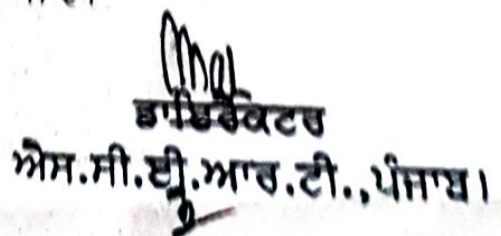 ਡਾਇਰੈਕਟਰ
ਐਸ.ਸੀ.ਈ.ਆਰ.ਟੀ.,ਪੰਜਾਬ।